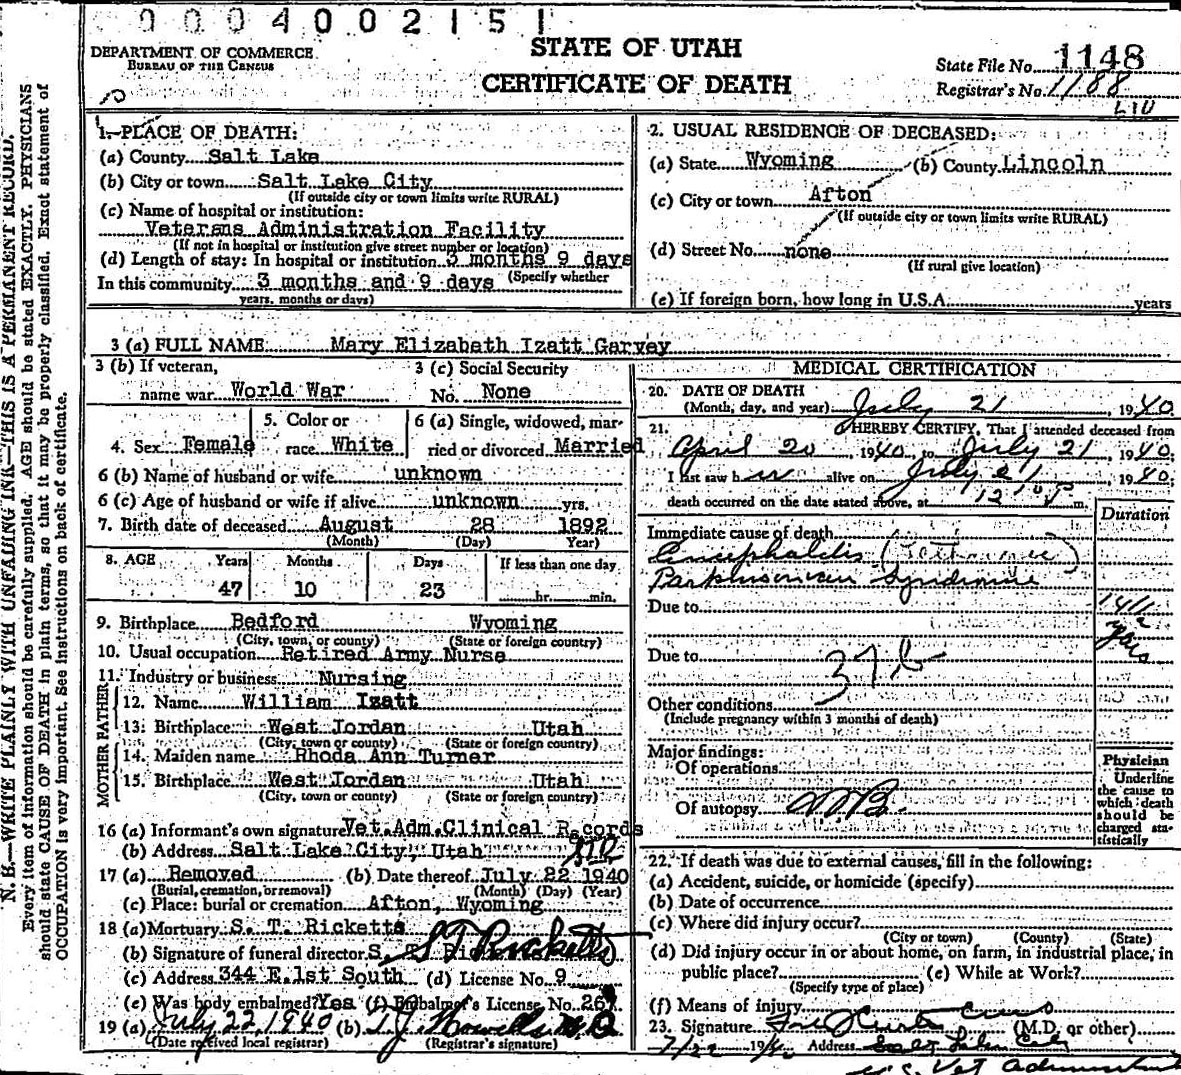 0004002151
DEPARTMENT OF COMMERCE
BUREAU OF THE CENSUS
STATE OF UTAH
CERTIFICATE OF DEATH
State File No. 1148
Registrar's No. 1188
N. B.—WRITE PLAINLY WITH UNFADING INK—THIS IS A PERMANENT RECORD.
Every item of information should be carefully supplied. AGE should be stated EXACTLY. PHYSICIANS
should state CAUSE OF DEATH in plain terms, so that it may be properly classified. Exact statement of
OCCUPATION is very important. See instructions on back of certificate.
1. PLACE OF DEATH:
(a) County Salt Lake
(b) City or town Salt Lake City
(If outside city or town limits write RURAL)
(c) Name of hospital or institution:
Veterans Administration Facility
(If not in hospital or institution give street number or location)
(d) Length of stay: In hospital or institution 3 months 9 days
In this community 3 months and 9 days (Specify whether
years, months or days)
2. USUAL RESIDENCE OF DECEASED:
(a) State Wyoming (b) County Lincoln
(c) City or town Afton
(If outside city or town limits write RURAL)
(d) Street No. none
(If rural give location)
(e) If foreign born, how long in U.S.A. years
3 (a) FULL NAME Mary Elizabeth Izatt Garvey
3 (b) If veteran,
name war World War
3 (c) Social Security
No. None
4. Sex Female
5. Color or
race White
6 (a) Single, widowed, mar-
ried or divorced Married
6 (b) Name of husband or wife unknown
6 (c) Age of husband or wife if alive unknown yrs.
7. Birth date of deceased August 28 1892
(Month) (Day) Year)
8. AGE Years Months Days If less than one day
47 10 23 hr. min.
9. Birthplace Bedford Wyoming
(City, town, or county) (State or foreign country)
10. Usual occupation Retired Army Nurse
11. Industry or business Nursing
FATHER
12. Name William Izatt
13. Birthplace West Jordan Utah
(City, town or county) (State or foreign country)
MOTHER
14. Maiden name Rhoda Ann Turner
15. Birthplace West Jordan Utah
(City, town or county) (State or foreign country)
16 (a) Informant's own signature Vet. Adm. Clinical Records
(b) Address Salt Lake City, Utah
17 (a) Removed (b) Date thereof July 22 1940
(Burial, cremation, or removal) (Month) (Day) (Year)
(c) Place: burial or cremation Afton, Wyoming
18 (a) Mortuary S. T. Ricketts
(b) Signature of funeral director S. T. Ricketts
(c) Address 344 E. 1st South (d) License No. 9
(e) Was body embalmed? Yes (f) Embalmer's License No. 269
19 (a) July 22, 1940 (b) T. J. Howells M.D.
(Date received local registrar) (Registrar's signature)
MEDICAL CERTIFICATION
20. DATE OF DEATH
(Month, day, and year) July 21, 1940.
21. I HEREBY CERTIFY, That I attended deceased from
April 20, 1940, to July 21, 1940;
I last saw her alive on July 21, 1940;
death occurred on the date stated above, at 12 P m.
Duration
Immediate cause of death
Encephalitis
Parkinsonian Syndrome
Due to
years
Due to
37 b
Other conditions
(Include pregnancy within 3 months of death)
Major findings:
Of operations
Of autopsy
Physician
Underline
the cause to
which death
should be
charged sta-
tistically
22. If death was due to external causes, fill in the following:
(a) Accident, suicide, or homicide (specify)
(b) Date of occurrence
(c) Where did injury occur?
(City or town) (County) (State)
(d) Did injury occur in or about home, on farm, in industrial place, in
public place? (e) While at Work?
(Specify type of place)
(f) Means of injury
23. Signature (M.D. or other)
7/22 1940 Address Salt Lake City
U.S. Vet Administration